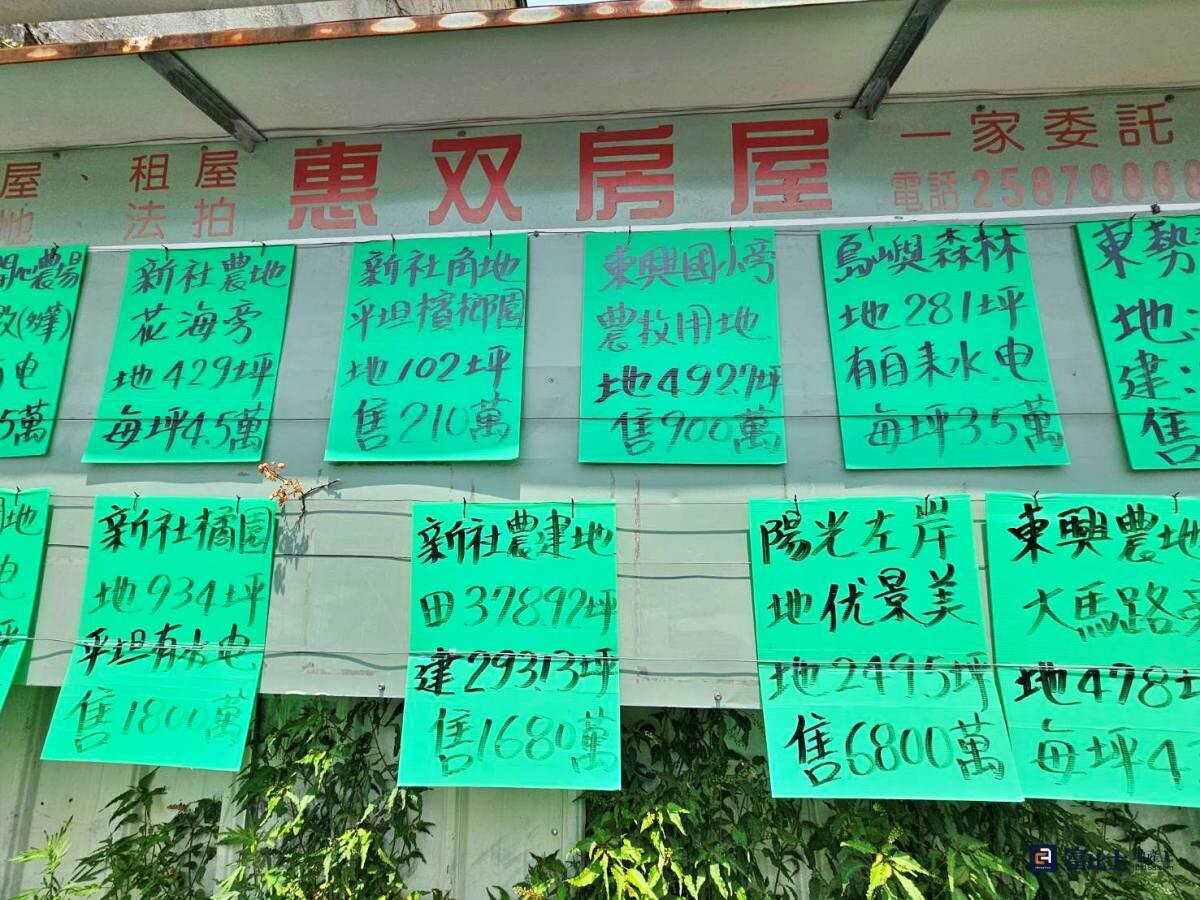 屋、租屋
地 法拍
惠双房屋
一家委託
電話25878888
農場
电
5萬
新社農地
花海旁
地429坪
每坪4.5萬
新社角地
平坦檳榔園
地102坪
售210萬
東興國小旁
農牧用地
地492.7坪
售900萬
島嶼森林
地281坪
有自来水.电
每坪3.5萬
東勢
地:
建:
售
地
电
坪
新社橘園
地934坪
平坦有水电
售1800萬
新社農建地
田378.92坪
建293.13坪
售1680萬
陽光左岸
地优景美
地2495坪
售6800萬
東興農地
大馬路旁
地478坪
每坪4